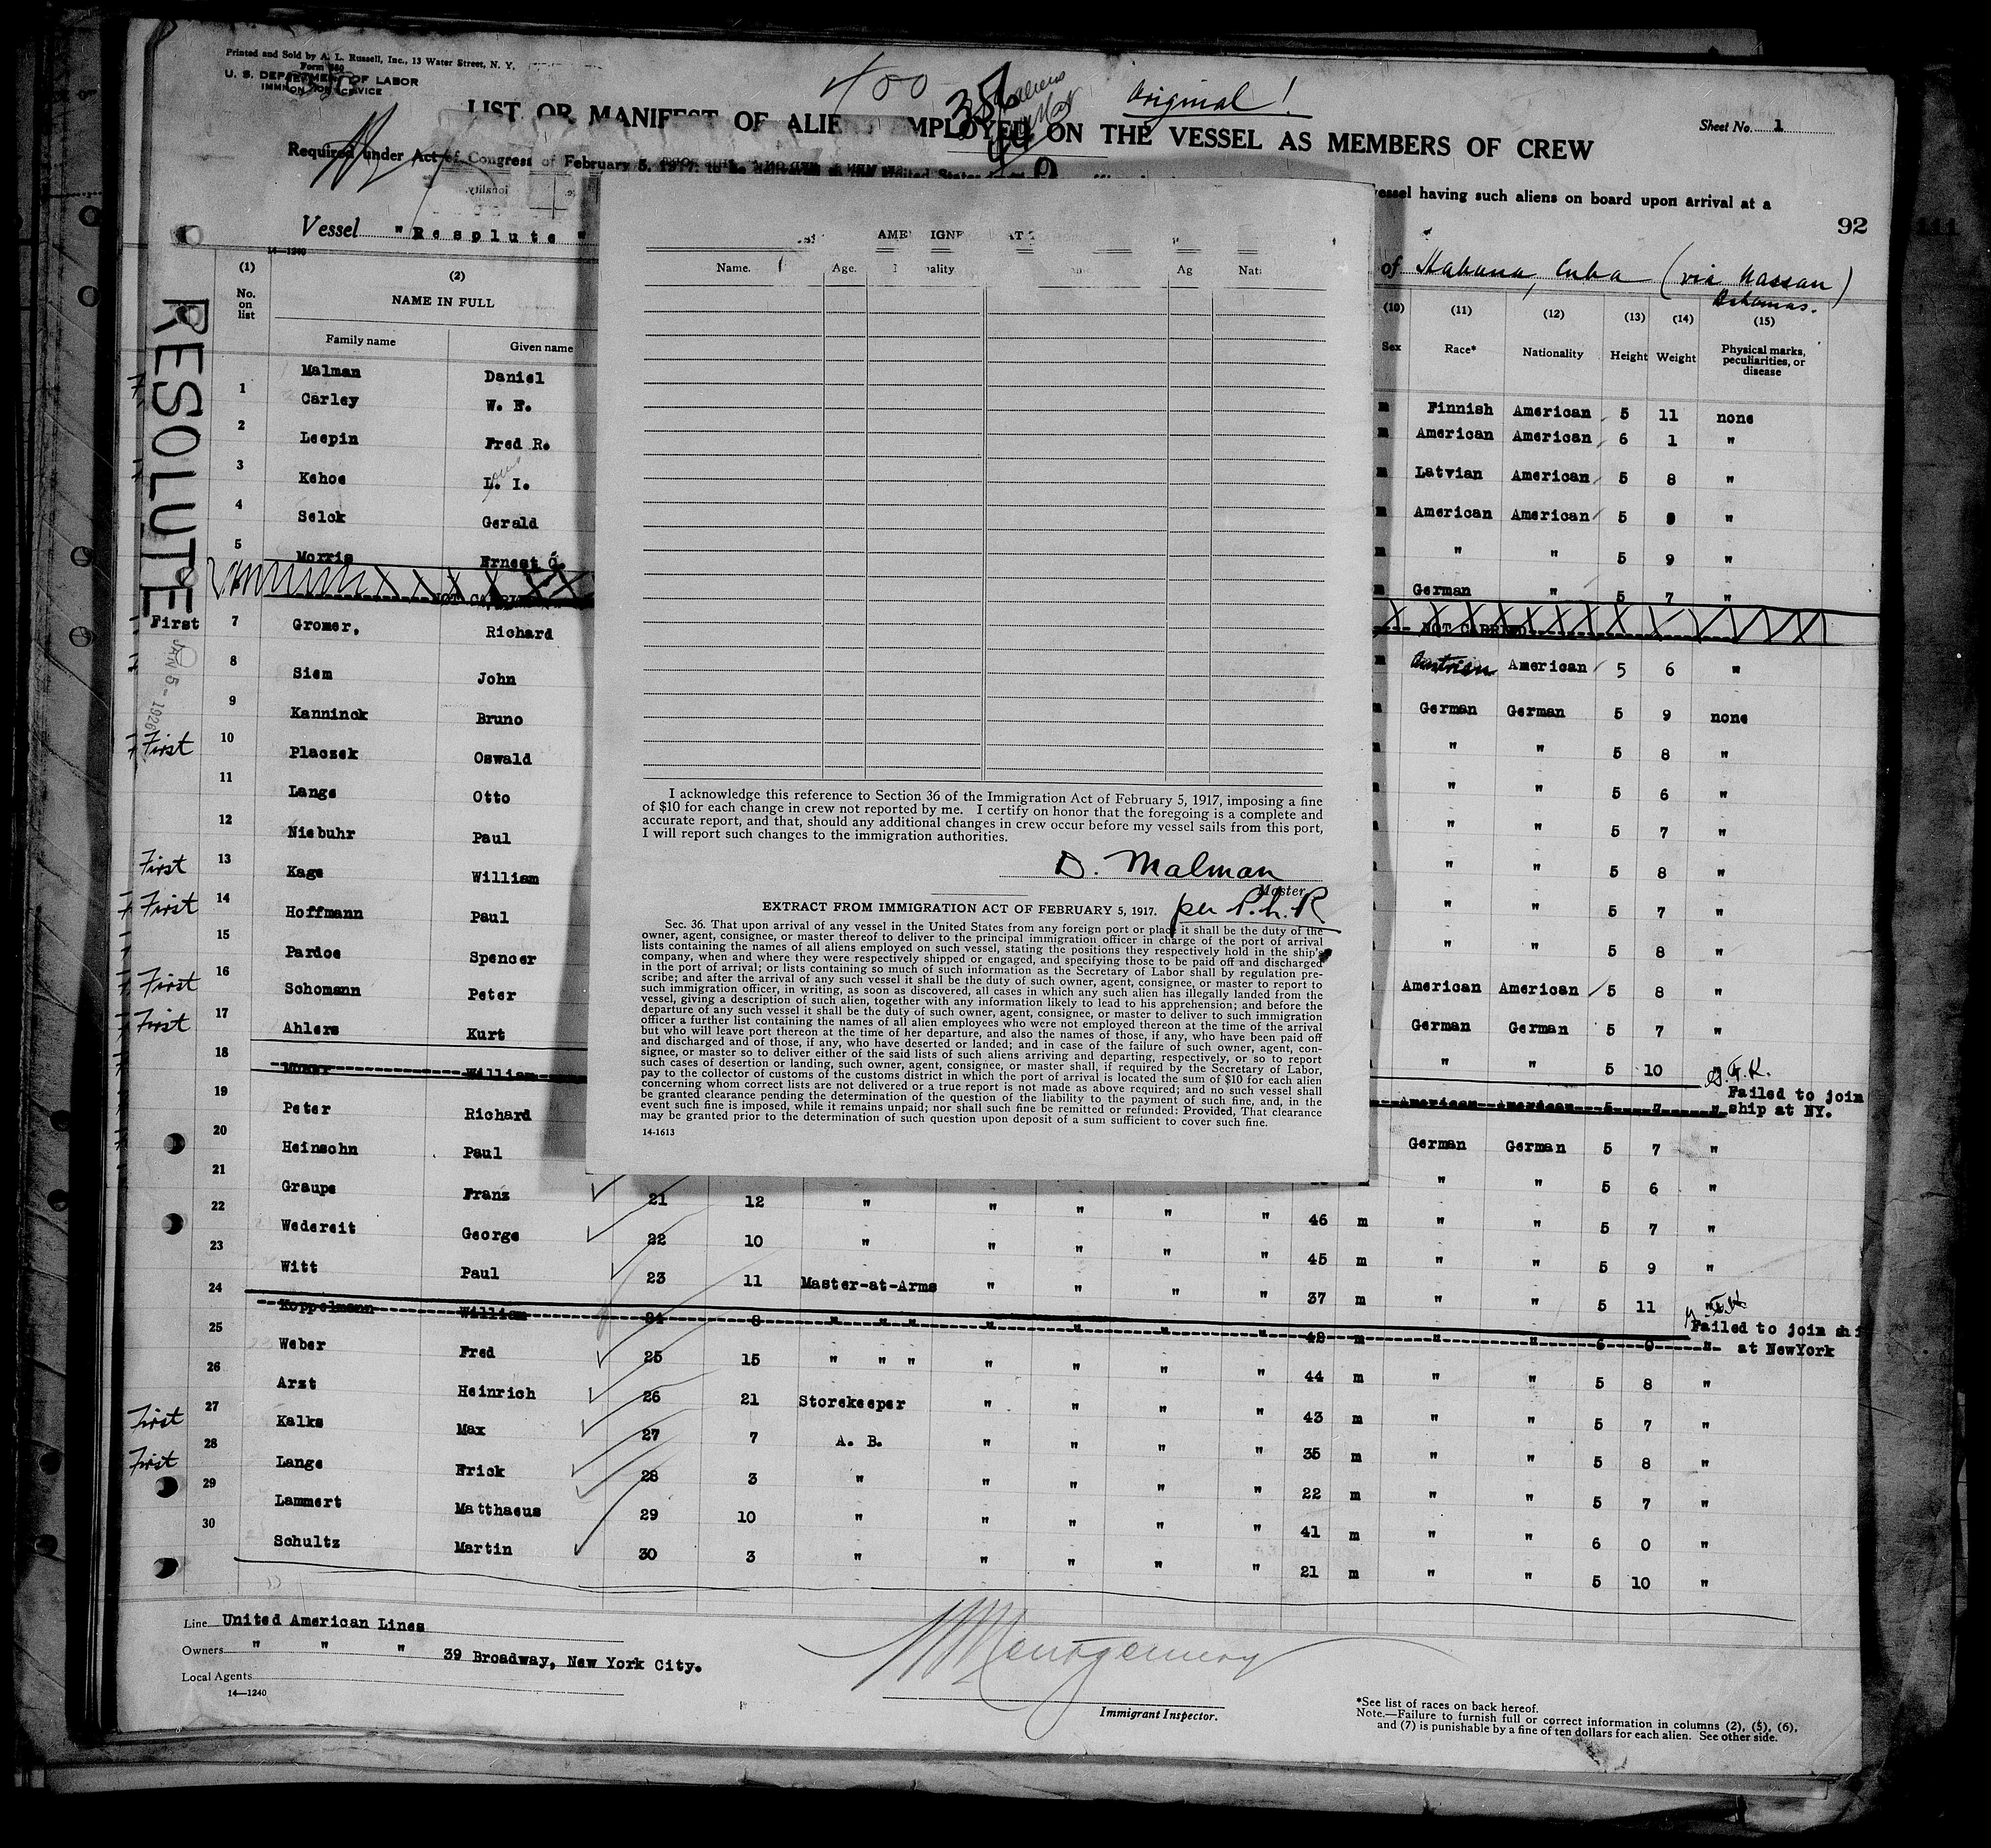 Printed and Sold by A. L. Russell, Inc., 13 Water Street, N. Y.
U. S. DEPARTMENT OF LABOR
400
Original!
Sheet No. 1
LIST OR MANIFEST OF ALIENS EMPLOYED ON THE VESSEL AS MEMBERS OF CREW
Required under Act of Congress of February 5, 1917, to be
vessel having such aliens on board upon arrival at a
92
Vessel "Resolute"
of Habana, Cuba (via Nassau Bahamas.)
14—1240
RESOLUTE
JAN 5 - 1926
(1) (2) (10) (11) (12) (13) (14) (15)
No. on list NAME IN FULL Sex Race* Nationality Height Weight Physical marks, peculiarities, or disease
Family name Given name
Name. Age. Ag
1 Malman Daniel m Finnish American 5 11 none
2 Carley W. E. m American American 6 1 "
3 Leepin Fred R. m Latvian American 5 8 "
4 Kehoe L. I. m American American 5 9 "
5 Selck Gerald m " " 5 9 "
Morris Ernest C. m German " 5 7 "
NOT CARRIED
First 7 Gromer, Richard m Austrian American 5 6 "
8 Siem John m German German 5 9 none
9 Kanninck Bruno " " 5 8 "
First 10 Placzek Oswald " " 5 6 "
11 Lange Otto " " 5 7 "
12 Niebuhr Paul " " 5 8 "
First 13 Kage William " " 5 7 "
First 14 Hoffmann Paul " " 5 8 "
15 Pardoe Spencer American American 5 8 "
First 16 Schomann Peter German German 5 7 "
First 17 Ahlers Kurt " " 5 10 "
18 William American American 5 7 " Failed to join ship at NY.
19 Peter Richard German German 5 7 "
20 Heinsohn Paul " " 5 6 "
21 Graupe Franz 21 12 " " " " " 46 m " " 5 7 "
22 Wedereit George 22 10 " " " " " 45 m " " 5 9 "
23 Witt Paul 23 11 Master-at-Arms " " " " 37 m " " 5 11 "
24 Koppelmann William 24 8 " " " " " " " 42 m " " 6 0 " Failed to join shi at NewYork
25 Weber Fred 25 15 " " " " " " " 44 m " " 5 8 "
26 Arzt Heinrich 26 21 Storekeeper " " " " 43 m " " 5 7 "
First 27 Kalks Max 27 7 A. B. " " " " 35 m " " 5 8 "
First 28 Lange Erick 28 3 " " " " " 22 m " " 5 7 "
29 Lammert Matthaeus 29 10 " " " " " 41 m " " 6 0 "
30 Schultz Martin 30 3 " " " " " 21 m " " 5 10 "
I acknowledge this reference to Section 36 of the Immigration Act of February 5, 1917, imposing a fine
of $10 for each change in crew not reported by me. I certify on honor that the foregoing is a complete and
accurate report, and that, should any additional changes in crew occur before my vessel sails from this port,
I will report such changes to the immigration authorities.
D. Malman
Master.
per P.h.R
EXTRACT FROM IMMIGRATION ACT OF FEBRUARY 5, 1917.
Sec. 36. That upon arrival of any vessel in the United States from any foreign port or place it shall be the duty of the
owner, agent, consignee, or master thereof to deliver to the principal immigration officer in charge of the port of arrival
lists containing the names of all aliens employed on such vessel, stating the positions they respectively hold in the ship's
company, when and where they were respectively shipped or engaged, and specifying those to be paid off and discharged
in the port of arrival; or lists containing so much of such information as the Secretary of Labor shall by regulation pre-
scribe; and after the arrival of any such vessel it shall be the duty of such owner, agent, consignee, or master to report to
such immigration officer, in writing, as soon as discovered, all cases in which any such alien has illegally landed from the
vessel, giving a description of such alien, together with any information likely to lead to his apprehension; and before the
departure of any such vessel it shall be the duty of such owner, agent, consignee, or master to deliver to such immigration
officer a further list containing the names of all alien employees who were not employed thereon at the time of the arrival
but who will leave port thereon at the time of her departure, and also the names of those, if any, who have been paid off
and discharged and of those, if any, who have deserted or landed; and in case of the failure of such owner, agent, con-
signee, or master so to deliver either of the said lists of such aliens arriving and departing, respectively, or so to report
such cases of desertion or landing, such owner, agent, consignee, or master shall, if required by the Secretary of Labor,
pay to the collector of customs of the customs district in which the port of arrival is located the sum of $10 for each alien
concerning whom correct lists are not delivered or a true report is not made as above required; and no such vessel shall
be granted clearance pending the determination of the question of the liability to the payment of such fine, and, in the
event such fine is imposed, while it remains unpaid; nor shall such fine be remitted or refunded: Provided, That clearance
may be granted prior to the determination of such question upon deposit of a sum sufficient to cover such fine.
14-1613
Line United American Lines
Owners " " " 39 Broadway, New York City.
Local Agents
14—1240
Montgomery
Immigrant Inspector.
*See list of races on back hereof.
Note.—Failure to furnish full or correct information in columns (2), (5), (6),
and (7) is punishable by a fine of ten dollars for each alien. See other side.